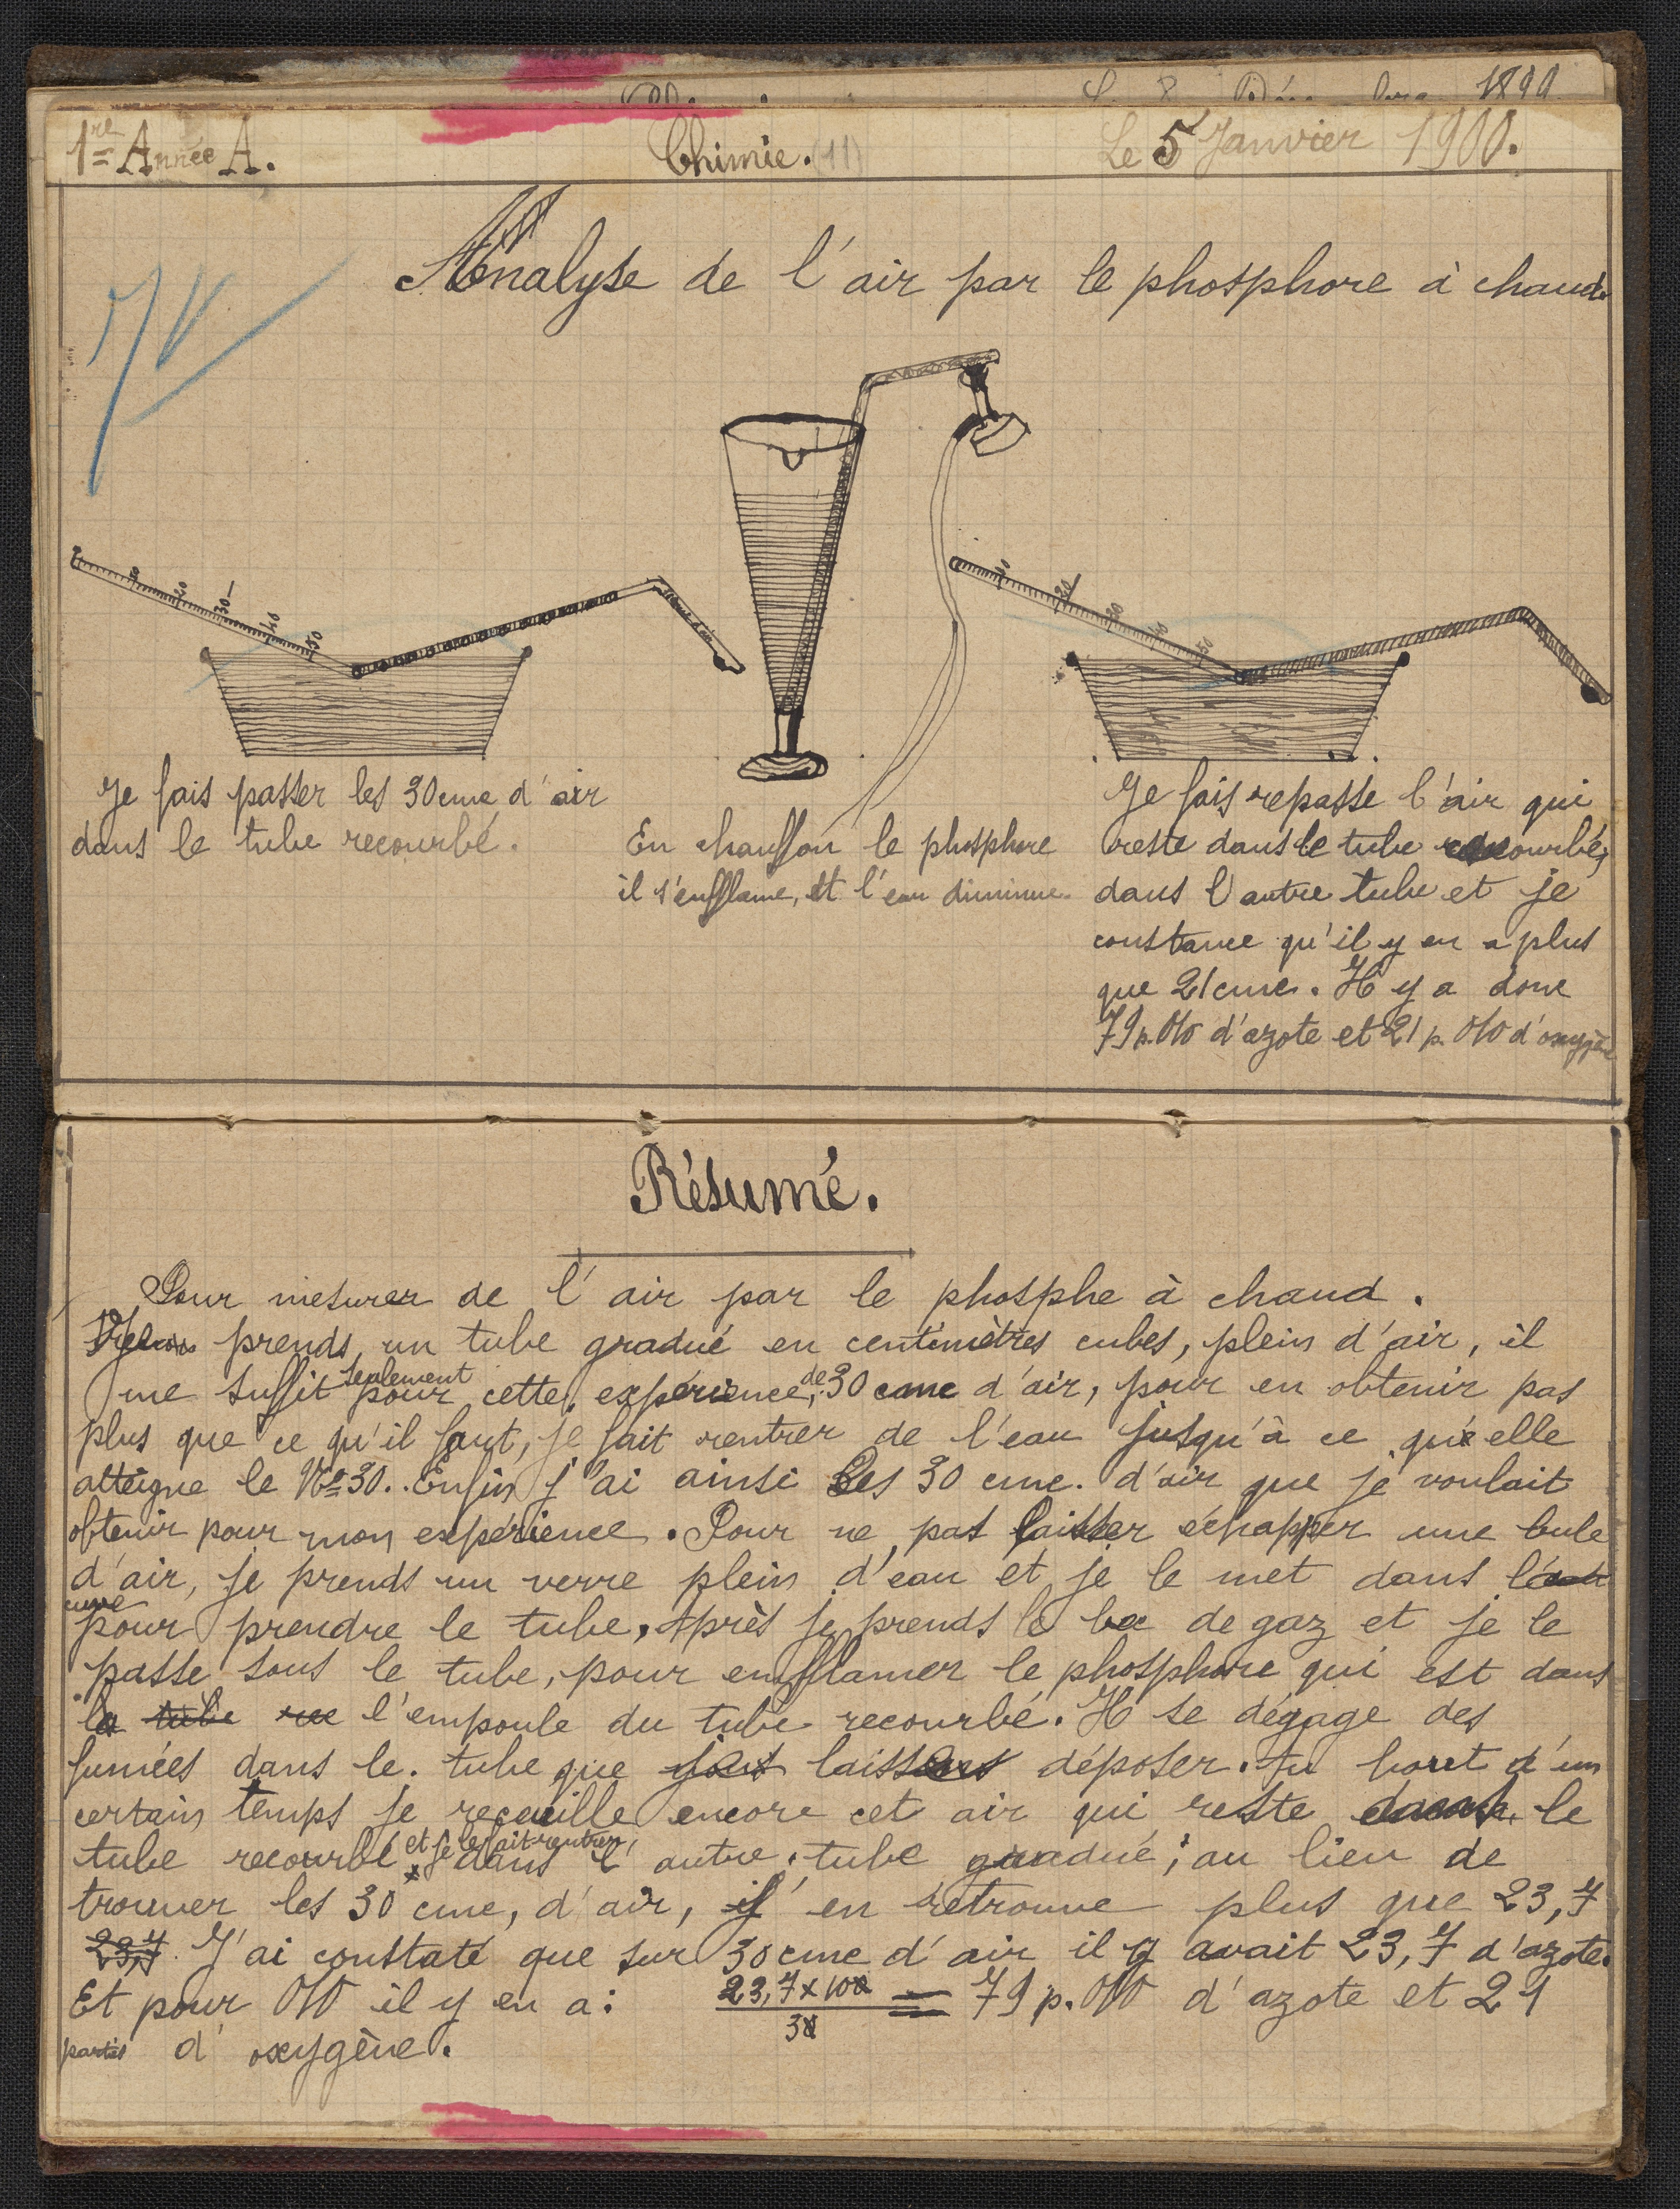 1re Année A. Chimie. (11) Le 5 Janvier 1900.
Analyse de l'air par le phosphore à chaud.
10 20 30 40 50
10 20 30 40 50
Je fais passer les 30 cmc d'air
dans le tube recourbé.
En chauffon le phosphore
il s'enfflame, et l'eau diminue.
Je fais repasse l'air qui
reste dans le tube recourbé,
dans l'autre tube et je
constance qu'il y en a plus
que 21 cmc. Il y a donc
79 p. 0/0 d'azote et 21 p. 0/0 d'oxygène
Résumé.
Pour mesurer de l'air par le phosphe à chaud.
Je prends un tube gradué en centimètres cubes, plein d'air, il
me suffit seulement pour cette expérience, de 30 cmc d'air, pour en obtenir pas
plus que ce qu'il faut, je fait rentrer de l'eau jusqu'à ce qu'elle
atteigne le No 30. Enfin j'ai ainsi les 30 cmc. d'air que je voulait
obtenir pour mon expérience. Pour ne pas laisser échapper une bule
d'air, je prends un verre plein d'eau et je le met dans la
cuve
pour prendre le tube. Après je prends le bec de gaz et je le
passe sous le tube, pour enfflamer le phosphore qui est dans
la tube l'empoule du tube recourbé. Il se dégage des
fumées dans le tube que laisse déposer. Au bout d'un
certain temps je receuille encore cet air qui reste dans le
tube recourbé et je le fait rentrer dans l'autre tube gradué; au lieu de
trouver les 30 cmc, d'air, j'en retrouve plus que 23,7
23,7. J'ai constaté que sur 30 cmc d'air il y avait 23,7 d'azote.
Et pour 0/0 il y en a: 23,7 x 100 / 30 = 79 p. 0/0 d'azote et 21
parties d'oxygène.